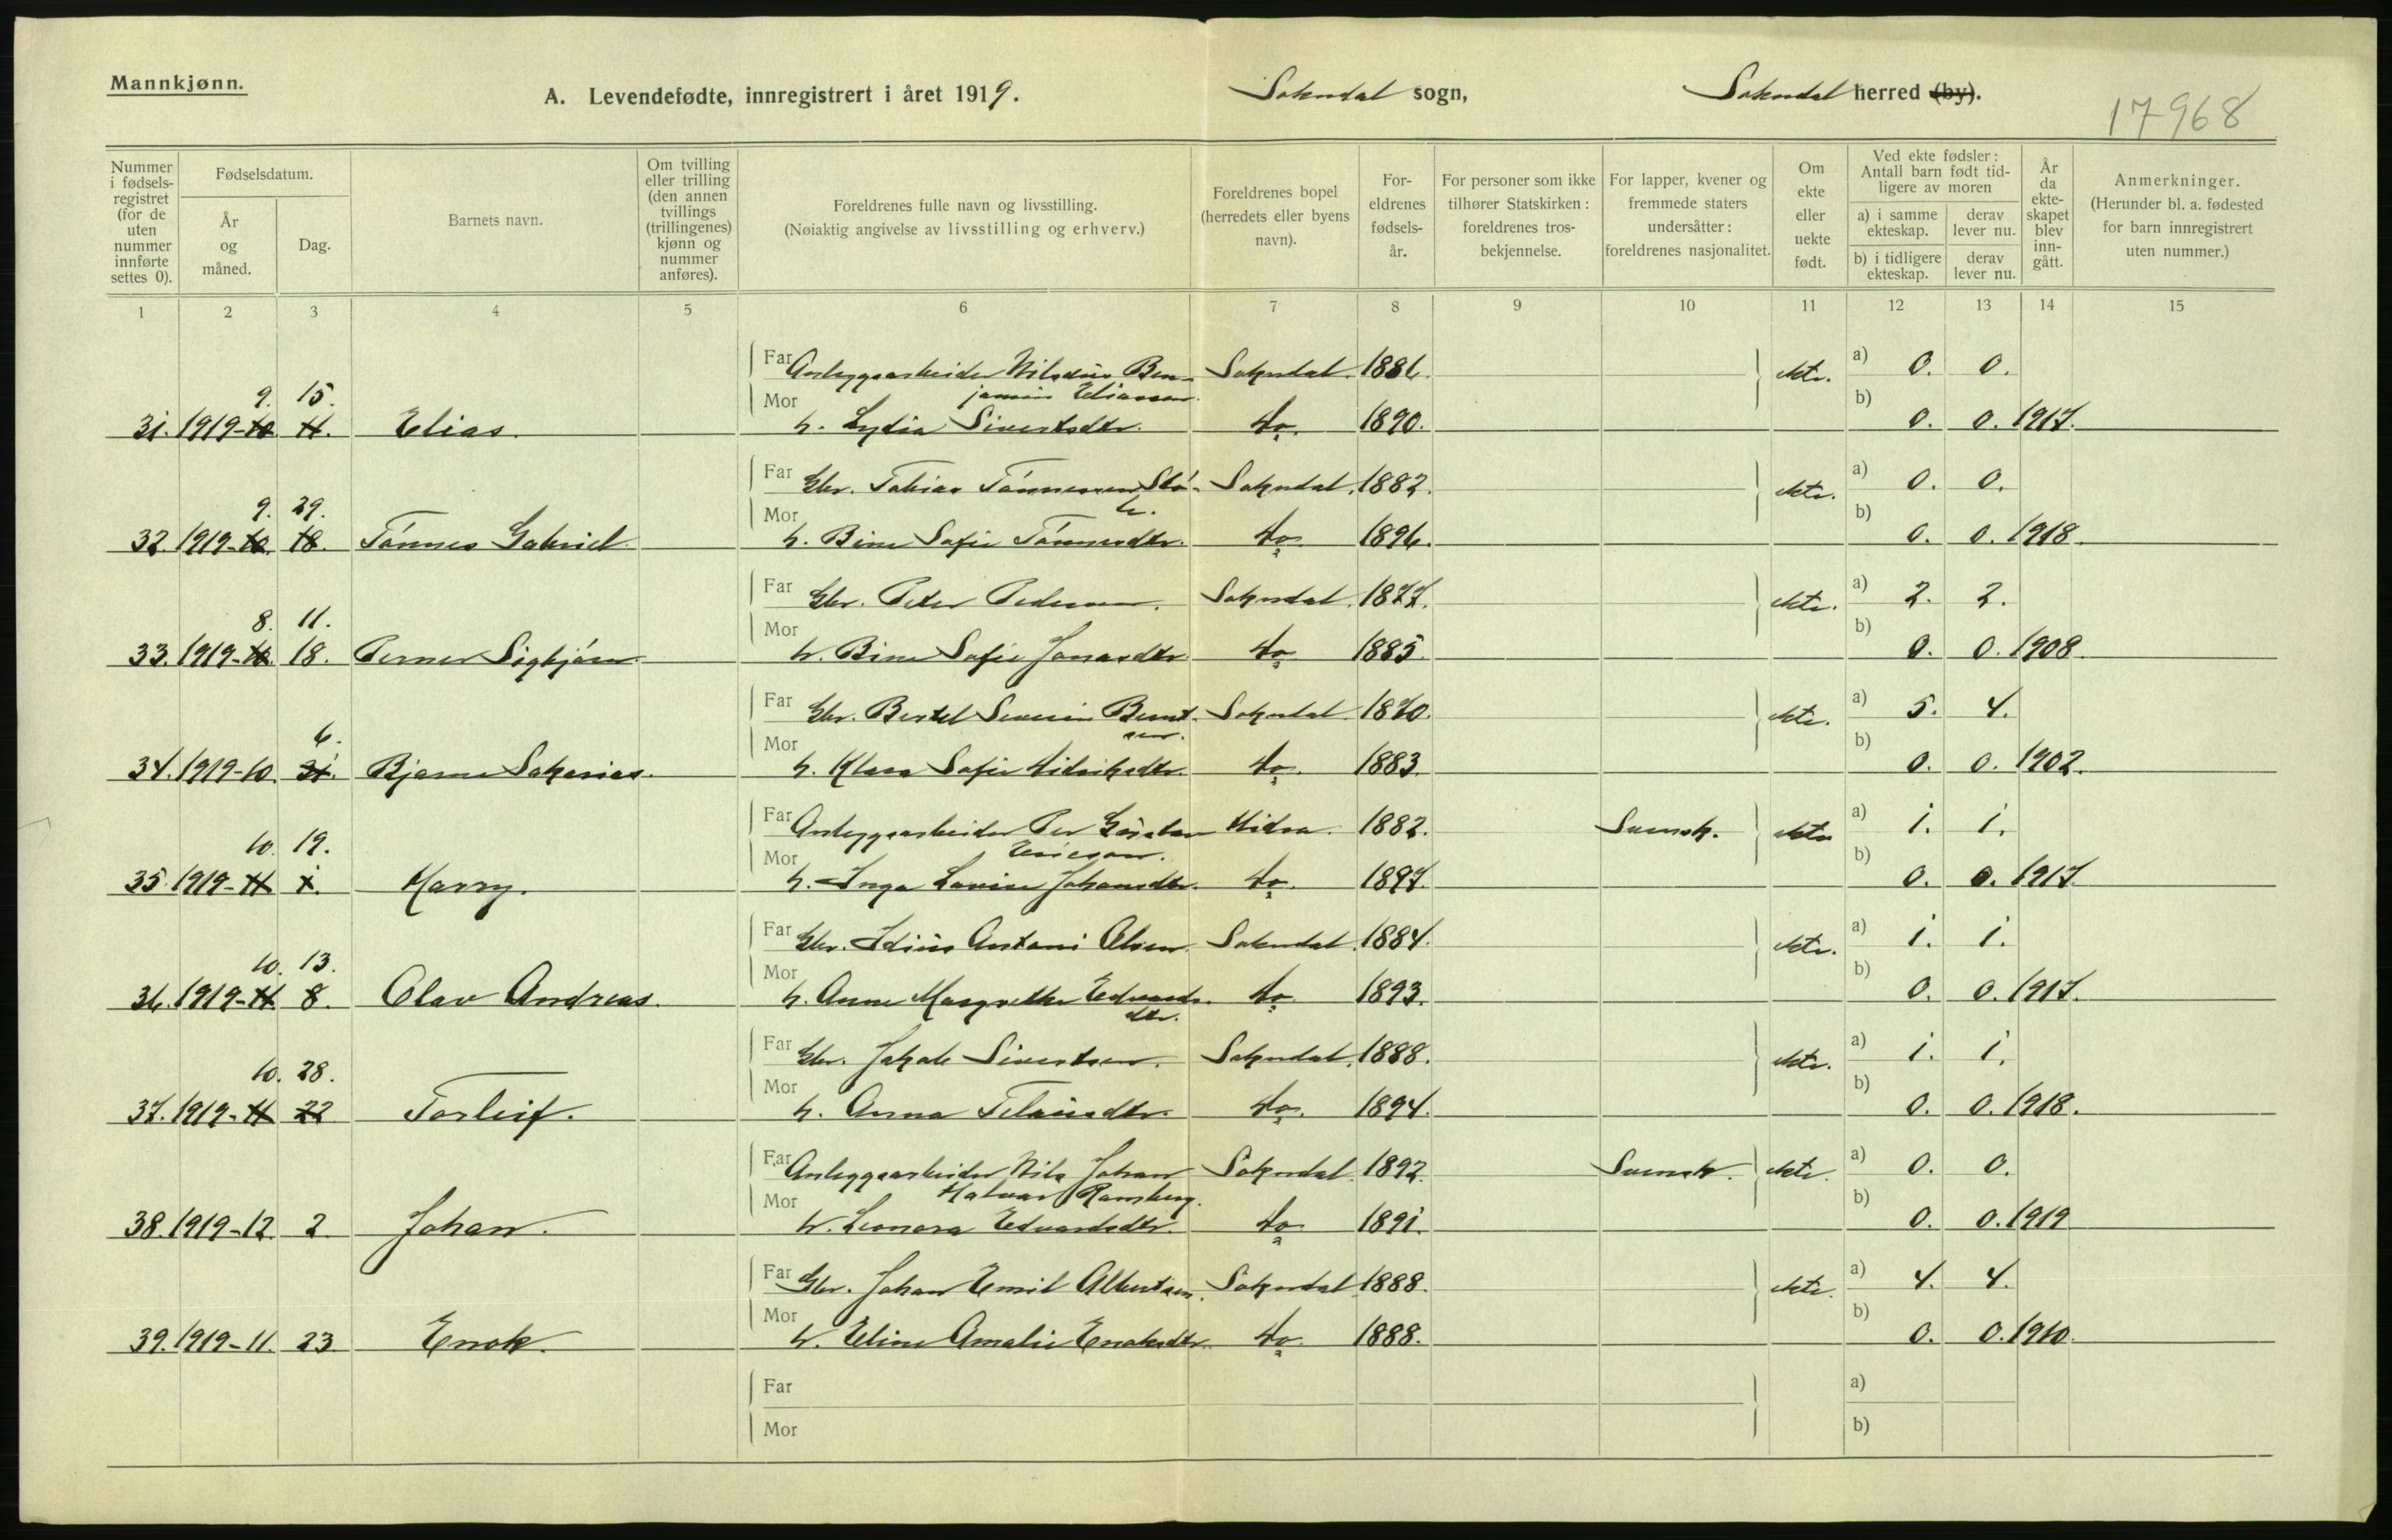 Mannkjønn.
A. Levendefødte, innregistrert i året 1919. Sokndal sogn, Sokndal herred (by).
17968
Nummer i fødselsregistret (for de uten nummer innførte settes 0).
Fødselsdatum.
År og måned.
Dag.
Barnets navn.
Om tvilling eller trilling (den annen tvillings (trillingenes) kjønn og nummer anføres).
Foreldrenes fulle navn og livsstilling.
(Nøiaktig angivelse av livsstilling og erhverv.)
Foreldrenes bopel (herredets eller byens navn).
Foreldrenes fødselsår.
For personer som ikke tilhører Statskirken: foreldrenes trosbekjennelse.
For lapper, kvener og fremmede staters undersåtter: foreldrenes nasjonalitet.
Om ekte eller uekte født.
Ved ekte fødsler: Antall barn født tidligere av moren
a) i samme ekteskap.
derav lever nu.
b) i tidligere ekteskap.
derav lever nu.
År da ekteskapet blev inngått.
Anmerkninger.
(Herunder bl. a. fødested for barn innregistrert uten nummer.)
1 2 3 4 5 6 7 8 9 10 11 12 13 14 15
Far Anleggsarbeider Nilsdius Ben- Sokndal. 1886. ekte. a) 0. 0.
9. 15. jamin Eliassen.
31. 1919-10. 11. Elias. Mor h. Lydia Sivertsdtr. do. 1890. b) 0. 0. 1917.
Far Gbr. Tobias Tønnessen Stø- Sokndal. 1882. ekte. a) 0. 0.
9. 29. le.
32. 1919-10. 18. Tønnes Gabriel. Mor h. Bine Sofie Tønnesdtr. do. 1896. b) 0. 0. 1918.
Far Gbr. Peter Pedersen. Sokndal. 1877. ekte. a) 2. 2.
8. 11.
33. 1919-10. 18. Perner Sigbjørn. Mor h. Bine Sofie Jonasdtr. do. 1885. b) 0. 0. 1908.
Far Gbr. Bertel Severin Bernt- Sokndal. 1870. ekte. a) 5. 4.
6. sen.
34. 1919-10. 31. Bjarne Sakarias. Mor h. Klara Sofie Didriksdtr. do. 1883. b) 0. 0. 1902.
Far Anleggsarbeider Per Gustav Hidra. 1882. Svensk. ekte a) 1. 1.
10. 19. Ericson.
35. 1919-11 1. Harry. Mor h. Inga Lovise Johansdtr. do. 1897. b) 0. 0. 1917.
Far Gbr. Idius Antoni Olsen. Sokndal. 1884. ekte. a) 1. 1.
10. 13.
36. 1919-11. 8. Olav Andreas. Mor h. Anne Margrethe Edvards- do. 1893. b) 0. 0. 1917.
dtr.
Far Gbr. Jakob Sivertsen. Sokndal. 1888. ekte. a) 1. 1.
10. 28.
37. 1919-11 22 Torleif. Mor h. Anna Teleusdtr. do. 1894. b) 0. 0. 1918.
Far Anleggsarbeider Nils Johan Sokndal. 1892. Svensk. ekte. a) 0. 0.
Halvar Ramberg.
38. 1919-12. 2. Johan. Mor h. Leonora Edvardsdtr. do. 1891. b) 0. 0. 1919
Far Gbr. Johan Emil Albertsen. Sokndal 1888. ekte. a) 4. 4.
39. 1919-11. 23. Enok. Mor h. Eline Amalie Enoksdtr. do. 1888. b) 0. 0. 1910.
Far a)
Mor b)